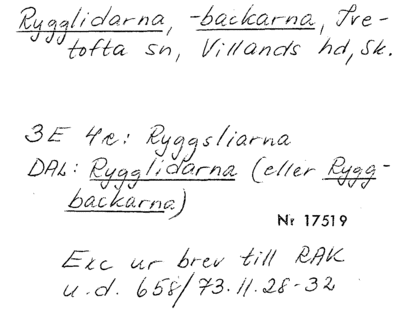 Rygglidarna, -backarna, Ive-
tofta sn, Villands hd, Sk.
3E 4e: Ryggsliarna
DAL: Rygglidarna (eller Rygg-
backarna)
Nr 17519
Exc ur brev till RAK
u.d. 658/73.11.28-32